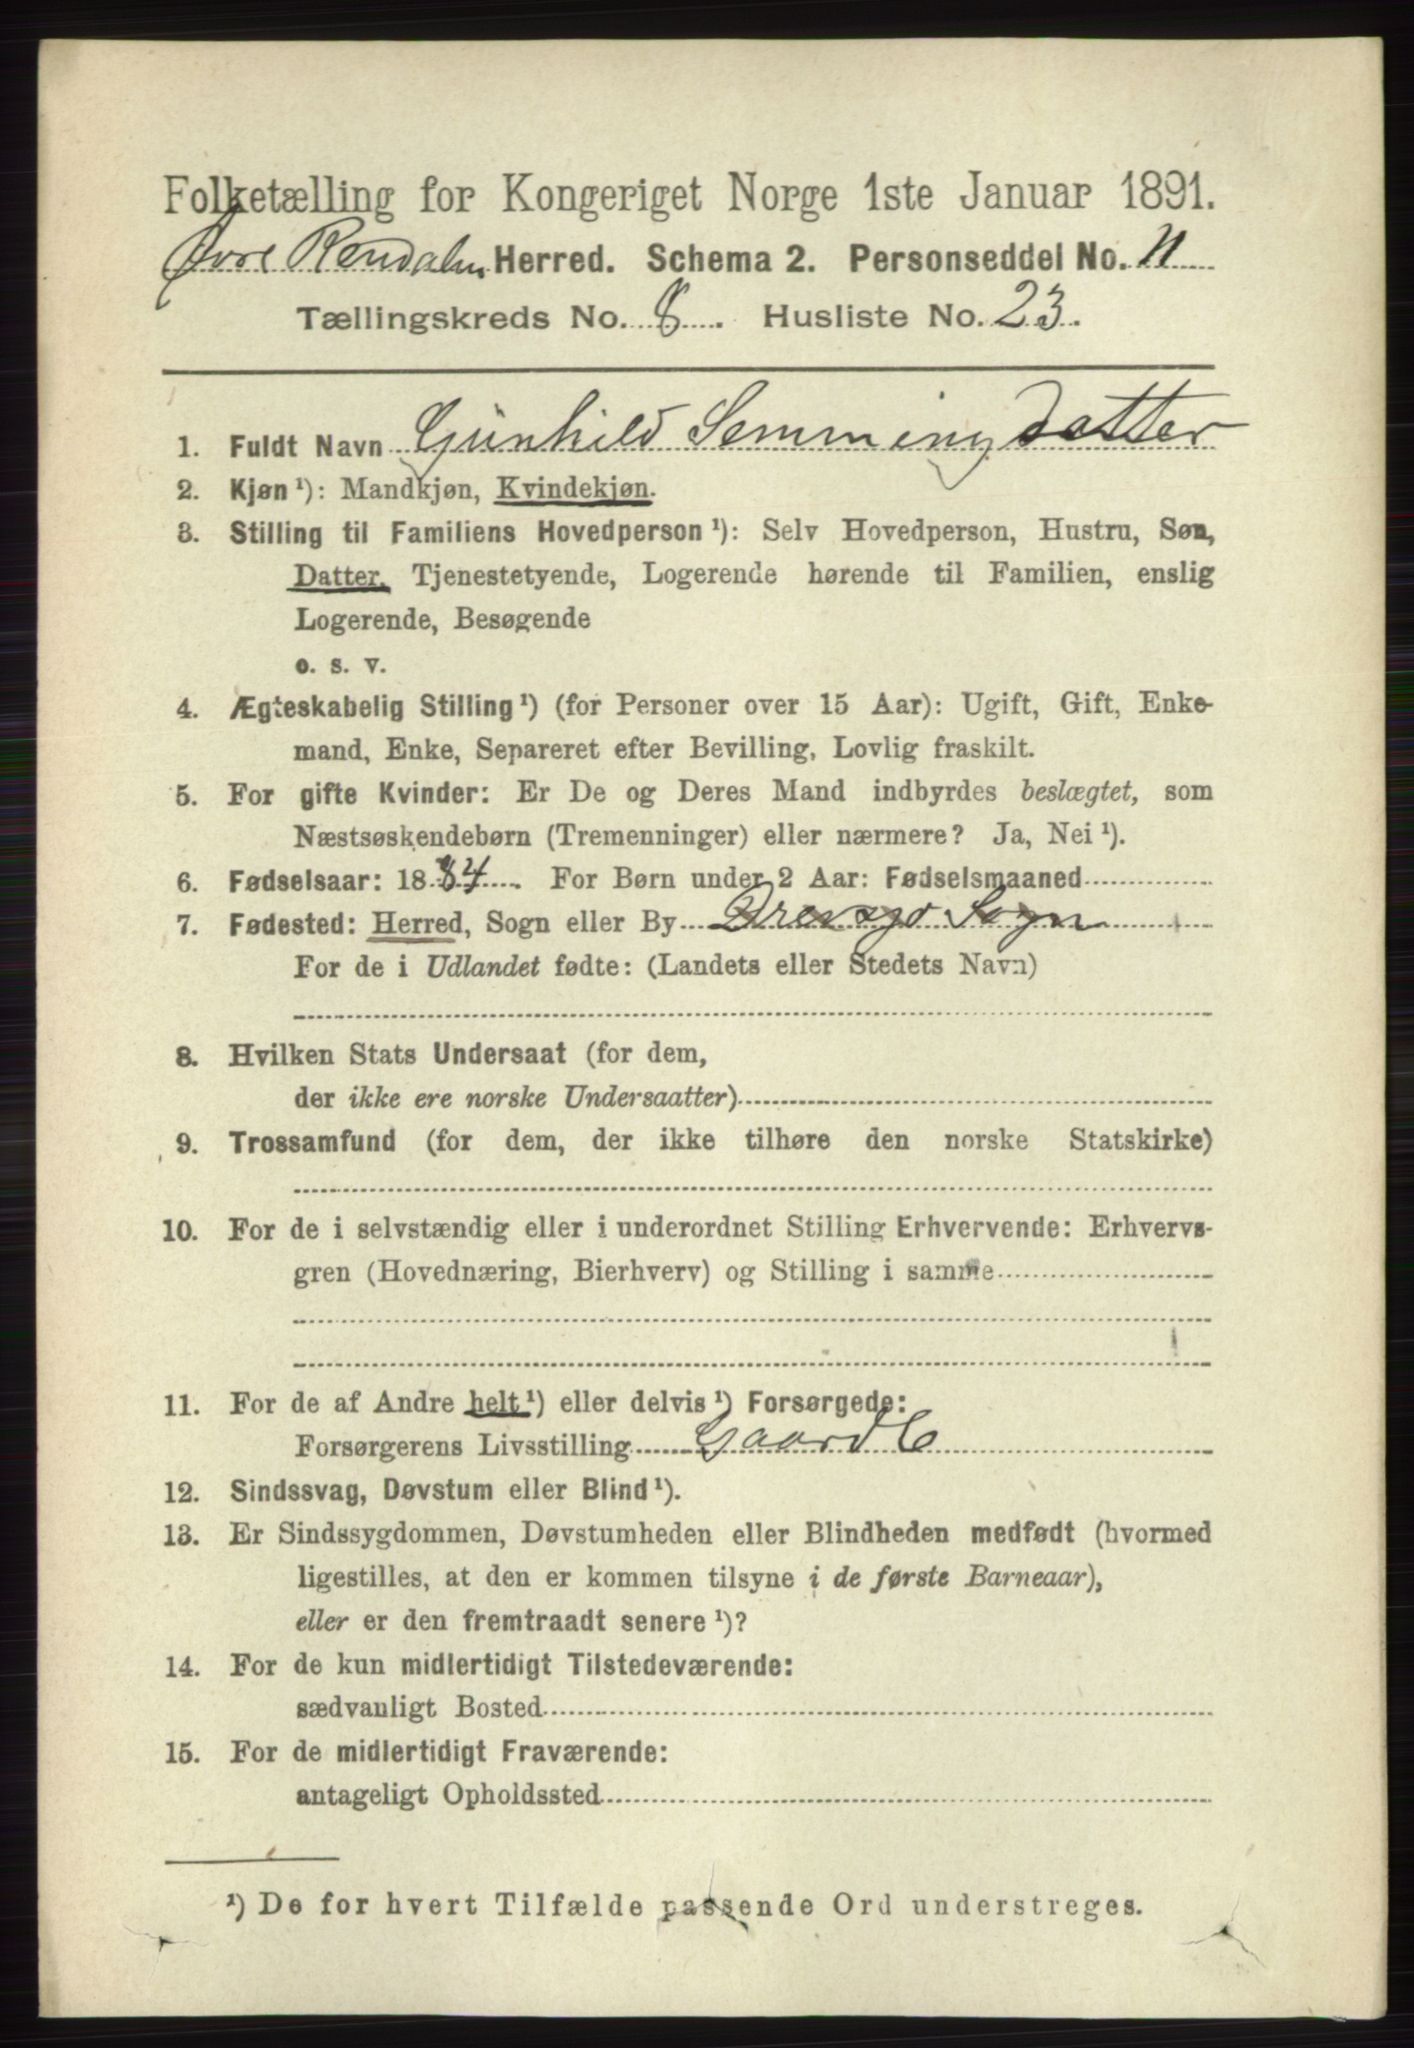 Folketælling for Kongeriget Norge 1ste Januar 1891.
Øvre Rendalen Herred. Schema 2. Personseddel No. 11
Tællingskreds No. 8. Husliste No. 23.
1. Fuldt Navn Gunhild Semmingdatter
2. Kjøn ¹): Mandkjøn, Kvindekjøn.
3. Stilling til Familiens Hovedperson ¹): Selv Hovedperson, Hustru, Søn,
Datter, Tjenestetyende, Logerende hørende til Familien, enslig
Logerende, Besøgende
o. s. v.
4. Ægteskabelig Stilling ¹) (for Personer over 15 Aar): Ugift, Gift, Enke-
mand, Enke, Separeret efter Bevilling, Lovlig fraskilt.
5. For gifte Kvinder: Er De og Deres Mand indbyrdes beslægtet, som
Næstsøskendebørn (Tremenninger) eller nærmere? Ja, Nei ¹).
6. Fødselsaar: 1884. For Børn under 2 Aar: Fødselsmaaned
7. Fødested: Herred, Sogn eller By Drevsjø Sogn
For de i Udlandet fødte: (Landets eller Stedets Navn)
8. Hvilken Stats Undersaat (for dem,
der ikke ere norske Undersaatter)
9. Trossamfund (for dem, der ikke tilhøre den norske Statskirke)
10. For de i selvstændig eller i underordnet Stilling Erhvervende: Erhvervs-
gren (Hovednæring, Bierhverv) og Stilling i samme
11. For de af Andre helt ¹) eller delvis ¹) Forsørgede:
Forsørgerens Livsstilling
12. Sindssvag, Døvstum eller Blind ¹).
13. Er Sindssygdommen, Døvstumheden eller Blindheden medfødt (hvormed
ligestilles, at den er kommen tilsyne i de første Barneaar),
eller er den fremtraadt senere ¹)?
14. For de kun midlertidigt Tilstedeværende:
sædvanligt Bosted
15. For de midlertidigt Fraværende:
antageligt Opholdssted
¹) De for hvert Tilfælde passende Ord understreges.